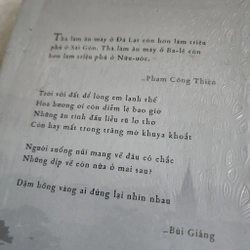 Thà làm ăn mày ở Đà Lạt còn hơn làm triệu
phú ở Sài Gòn. Thà làm ăn mày ở Ba-lê còn
hơn làm triệu phú ở Nữu-ước.
–Phạm Công Thiện
Trời với đất để lòng em lạnh thế
Hoa hương ơi còn diễm lệ bao giờ
Những ân tình đầu liễu rũ lơ thơ
Còn hay mất trong trăng mờ khuya khoắt
Người xuống núi mang về đâu có chắc
Những dịp về còn nữa ở mai sau?
Dặm hồng vàng ai đứng lại nhìn nhau
–Bùi Giáng